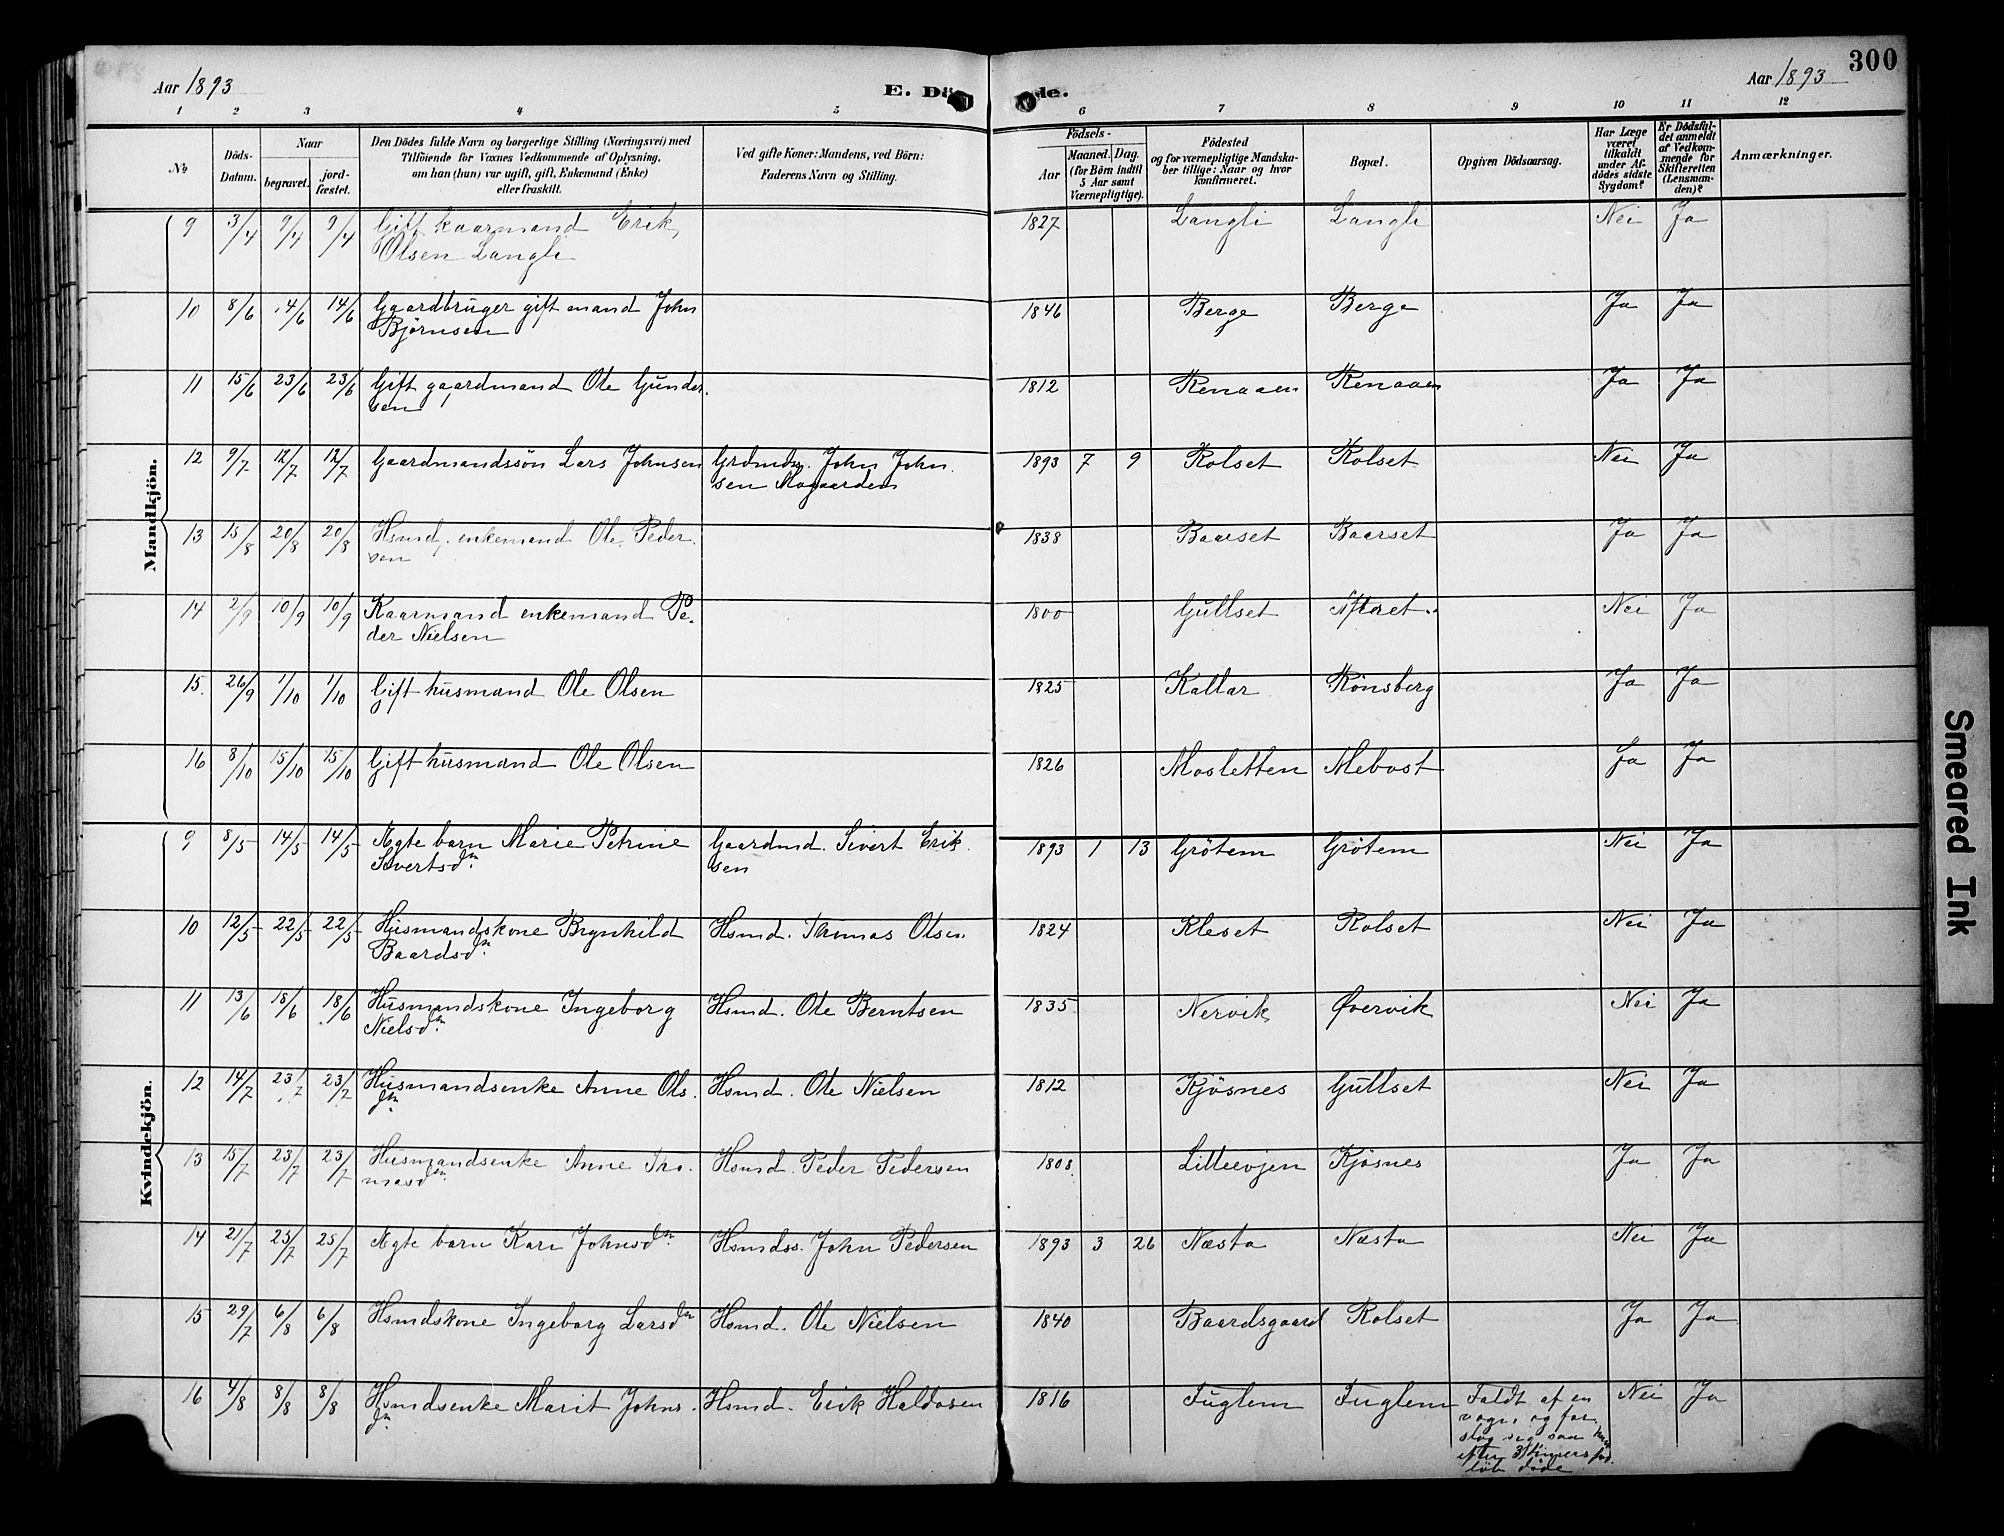 300
Aar 1893
E. Dö de.
Aar 1893
1 2 3 4 5 6 7 8 9 10 11 12
No
Döds-Datum.
Naar
begravet. jord-fæstet.
Den Dödes fulde Navn og borgerlige Stilling (Næringsvei) med
Tilföiende for Voxnes Vedkommende af Oplysning,
om han (hun) var ugift, gift, Enkemand (Enke)
eller fraskilt.
Ved gifte Koner: Mandens, ved Börn:
Faderens Navn og Stilling.
Födsels-
Aar
Maaned. Dag.
(for Börn indtil
5 Aar samt
Værnepligtige).
Födested
og for værnepligtige Mandska-
ber tillige: Naar og hvor
konfirmeret.
Bopæl.
Opgiven Dödsaarsag.
Har Læge
været
tilkaldt
under Af-
dödes sidste
Sygdom?
Er Dödsfal-
det anmeldt
af Vedkom-
mende for
Skifteretten
(Lensman-
den)?
Anmærkninger.
Mandkjön.
9 3/4 9/4 9/4 Gift kaarmand Erik 1827 Langli Langli Nei Ja
Olsen Langli
10 8/6 14/6 14/6 Gaardbruger gift mand John 1846 Berge Berge Ja Ja
Bjørnsen
11 15/6 23/6 23/6 Gift gaardmand Ole Gunder- 1812 Renaaen Renaaen Ja Ja
sen
12 9/7 12/7 12/7 Gaardmandssøn Lars Johnsen Grdmds. John John- 1893 7 9 Rolset Rolset Nei Ja
sen Mogaarden
13 15/8 20/8 20/8 Hsmd, enkemand Ole Peder- 1838 Baarset Baarset Ja Ja
sen
14 2/9 10/9 10/9 Kaarmand enkemand Pe- 1800 Gullset Aftret Nei Ja
der Nielsen
15. 26/9 1/10 1/10 Gift husmand Ole Olsen 1825 Kallar Rönsberg Ja Ja
16 8/10 15/10 15/10 Gift husmand Ole Olsen 1826 Mosletten Mebost Ja Ja
Kvindekjön.
9 8/5 14/5 14/5 Ægte barn Marie Petrine Gaardmd. Sivert Erik- 1893 1 13 Grötem Grötem Nei Ja
Sivertsdn. sen
10 12/5 22/5 22/5 Husmandskone Brynhild Hsmd. Thomas Olsen 1824 Kleset Rolset Nei Ja
Baardsdn.
11 13/6 18/6 18/6 Husmandskone Ingeborg Hsmd. Ole Berntsen 1835 Nervik Øvervik Nei Ja
Nielsdn.
12 14/7 23/7 23/7 Husmandsenke Anne Ols- Hsmd. Ole Nielsen 1812 Kjösnes Gullset Nei Ja
dn.
13 15/7 23/7 23/7 Husmandsenke Anne Tho- Hsmd. Peder Pedersen 1808 Lilleevjen Kjösnes Ja Ja
masdn.
14 21/7 25/7 25/7 Ægte barn Kari Johnsdn. Hsmdss. John Pedersen 1893 3 26 Næsta Næsta Nei Ja
15 29/7 6/8 6/8 Hsmdskone Ingeborg Larsdn. Hsmd. Ole Nielsen 1840 Baardsgaard Rolset Ja Ja
16 4/8 8/8 8/8 Hsmdsenke Marit Johns- Hsmd. Erik Haldosen 1816 Fuglem Fuglem Faldt af en Nei Ja
dn. vogn og for-
slog sig saa hun
efter 3 timers for-
löb döde
Smeared Ink